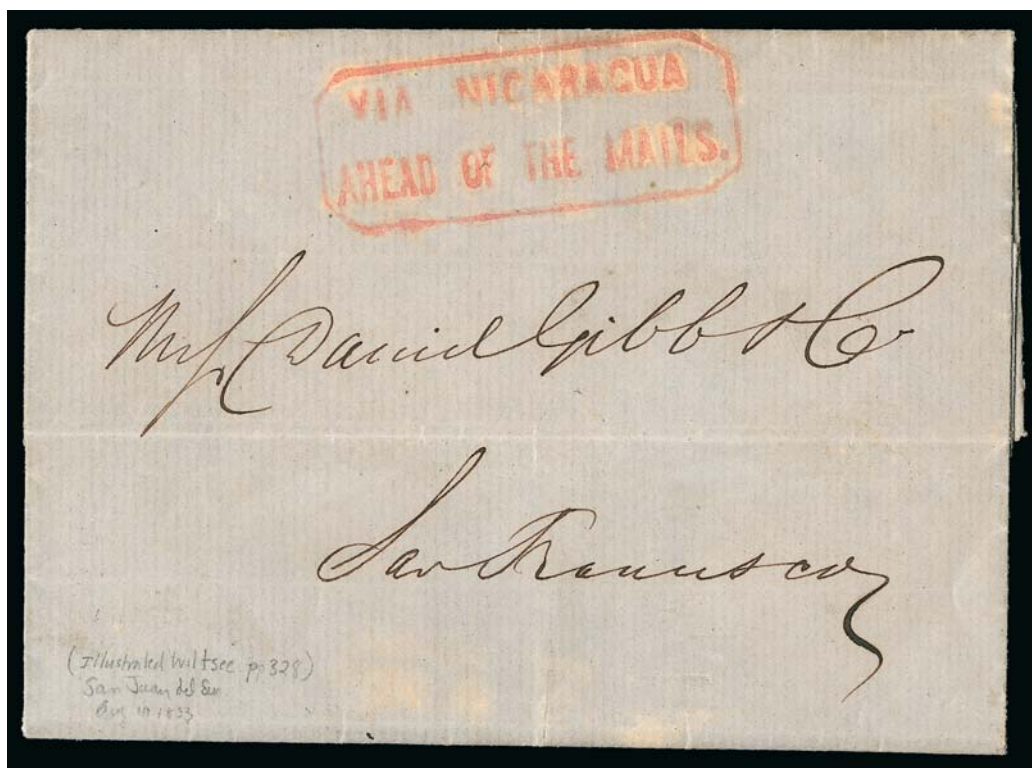 VIA NICARAGUA
AHEAD OF THE MAILS.
Mess Daniel Gibb & Co
San Francisco
(Illustrated Wiltsee pp 328)
San Juan del Sur
1853